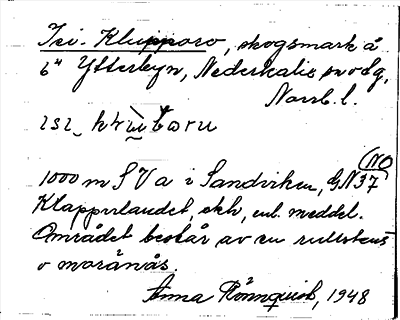 Isi-Klupporo, skogsmark å
6⁴ Ytterbyn, Nederkalix sn o dg,
Norrb. l.
ɪsɪ,
(NO
1000 m SV a i Sandviken, GN 37
Klapperlandet, ekh, enl. meddel.
Området består av en rullstens
o moränås.
Anna Rönnquist, 1948